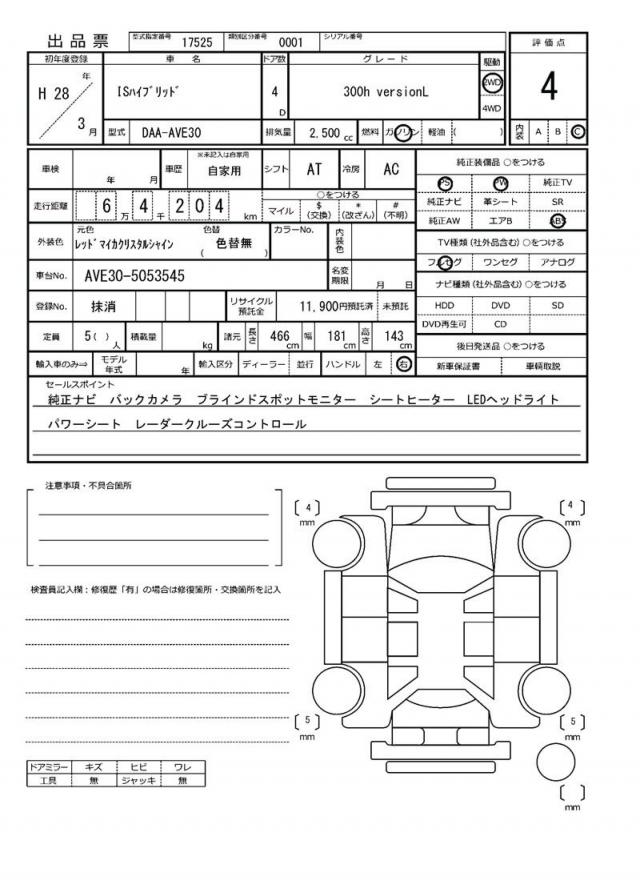 出品票 型式指定番号 17525 類別区分番号 0001 シリアル番号
初年度登録 車名 ドア数 グレード 駆動 評価点
H 28 年 3 月 ISハイブリッド 4 D 300h versionL 2WD 4WD 4
型式 DAA-AVE30 排気量 2,500 cc 燃料 ガソリン 軽油 ( ) 内装 A B C
車検 年 月 車歴 ※未記入は自家用 自家用 シフト AT 冷房 AC
走行距離 6 万 4 千 2 0 4 km ○をつける マイル $ (交換) * (改ざん) # (不明)
外装色 元色 レッドマイカクリスタルシャイン 色替 ( 色替無 ) カラーNo. 内装色
車台No. AVE30-5053545 名変期限 月 日
登録No. 抹消 リサイクル預託金 11,900円預託済 未預託
定員 5 ( ) 人 積載量 kg 諸元 長さ 466 cm 幅 181 cm 高さ 143 cm
輸入車のみ⇒ モデル年式 年 輸入区分 ディーラー 並行 ハンドル 左 右
純正装備品 ○をつける
PS PW 純正TV
純正ナビ 革シート SR
純正AW エアB ABS
TV種類 (社外品含む) ○をつける
フルセグ ワンセグ アナログ
ナビ種類 (社外品含む) ○をつける
HDD DVD SD
DVD再生可 CD
後日発送品 ○をつける
新車保証書 車輌取説
セールスポイント
純正ナビ バックカメラ ブラインドスポットモニター シートヒーター LEDヘッドライト
パワーシート レーダークルーズコントロール
注意事項・不具合箇所
検査員記入欄：修復歴「有」の場合は修復箇所・交換箇所を記入
ドアミラー キズ ヒビ ワレ
工具 無 ジャッキ 無
[ 4 ] mm [ 4 ] mm
[ 5 ] mm [ 5 ] mm
[ ] mm